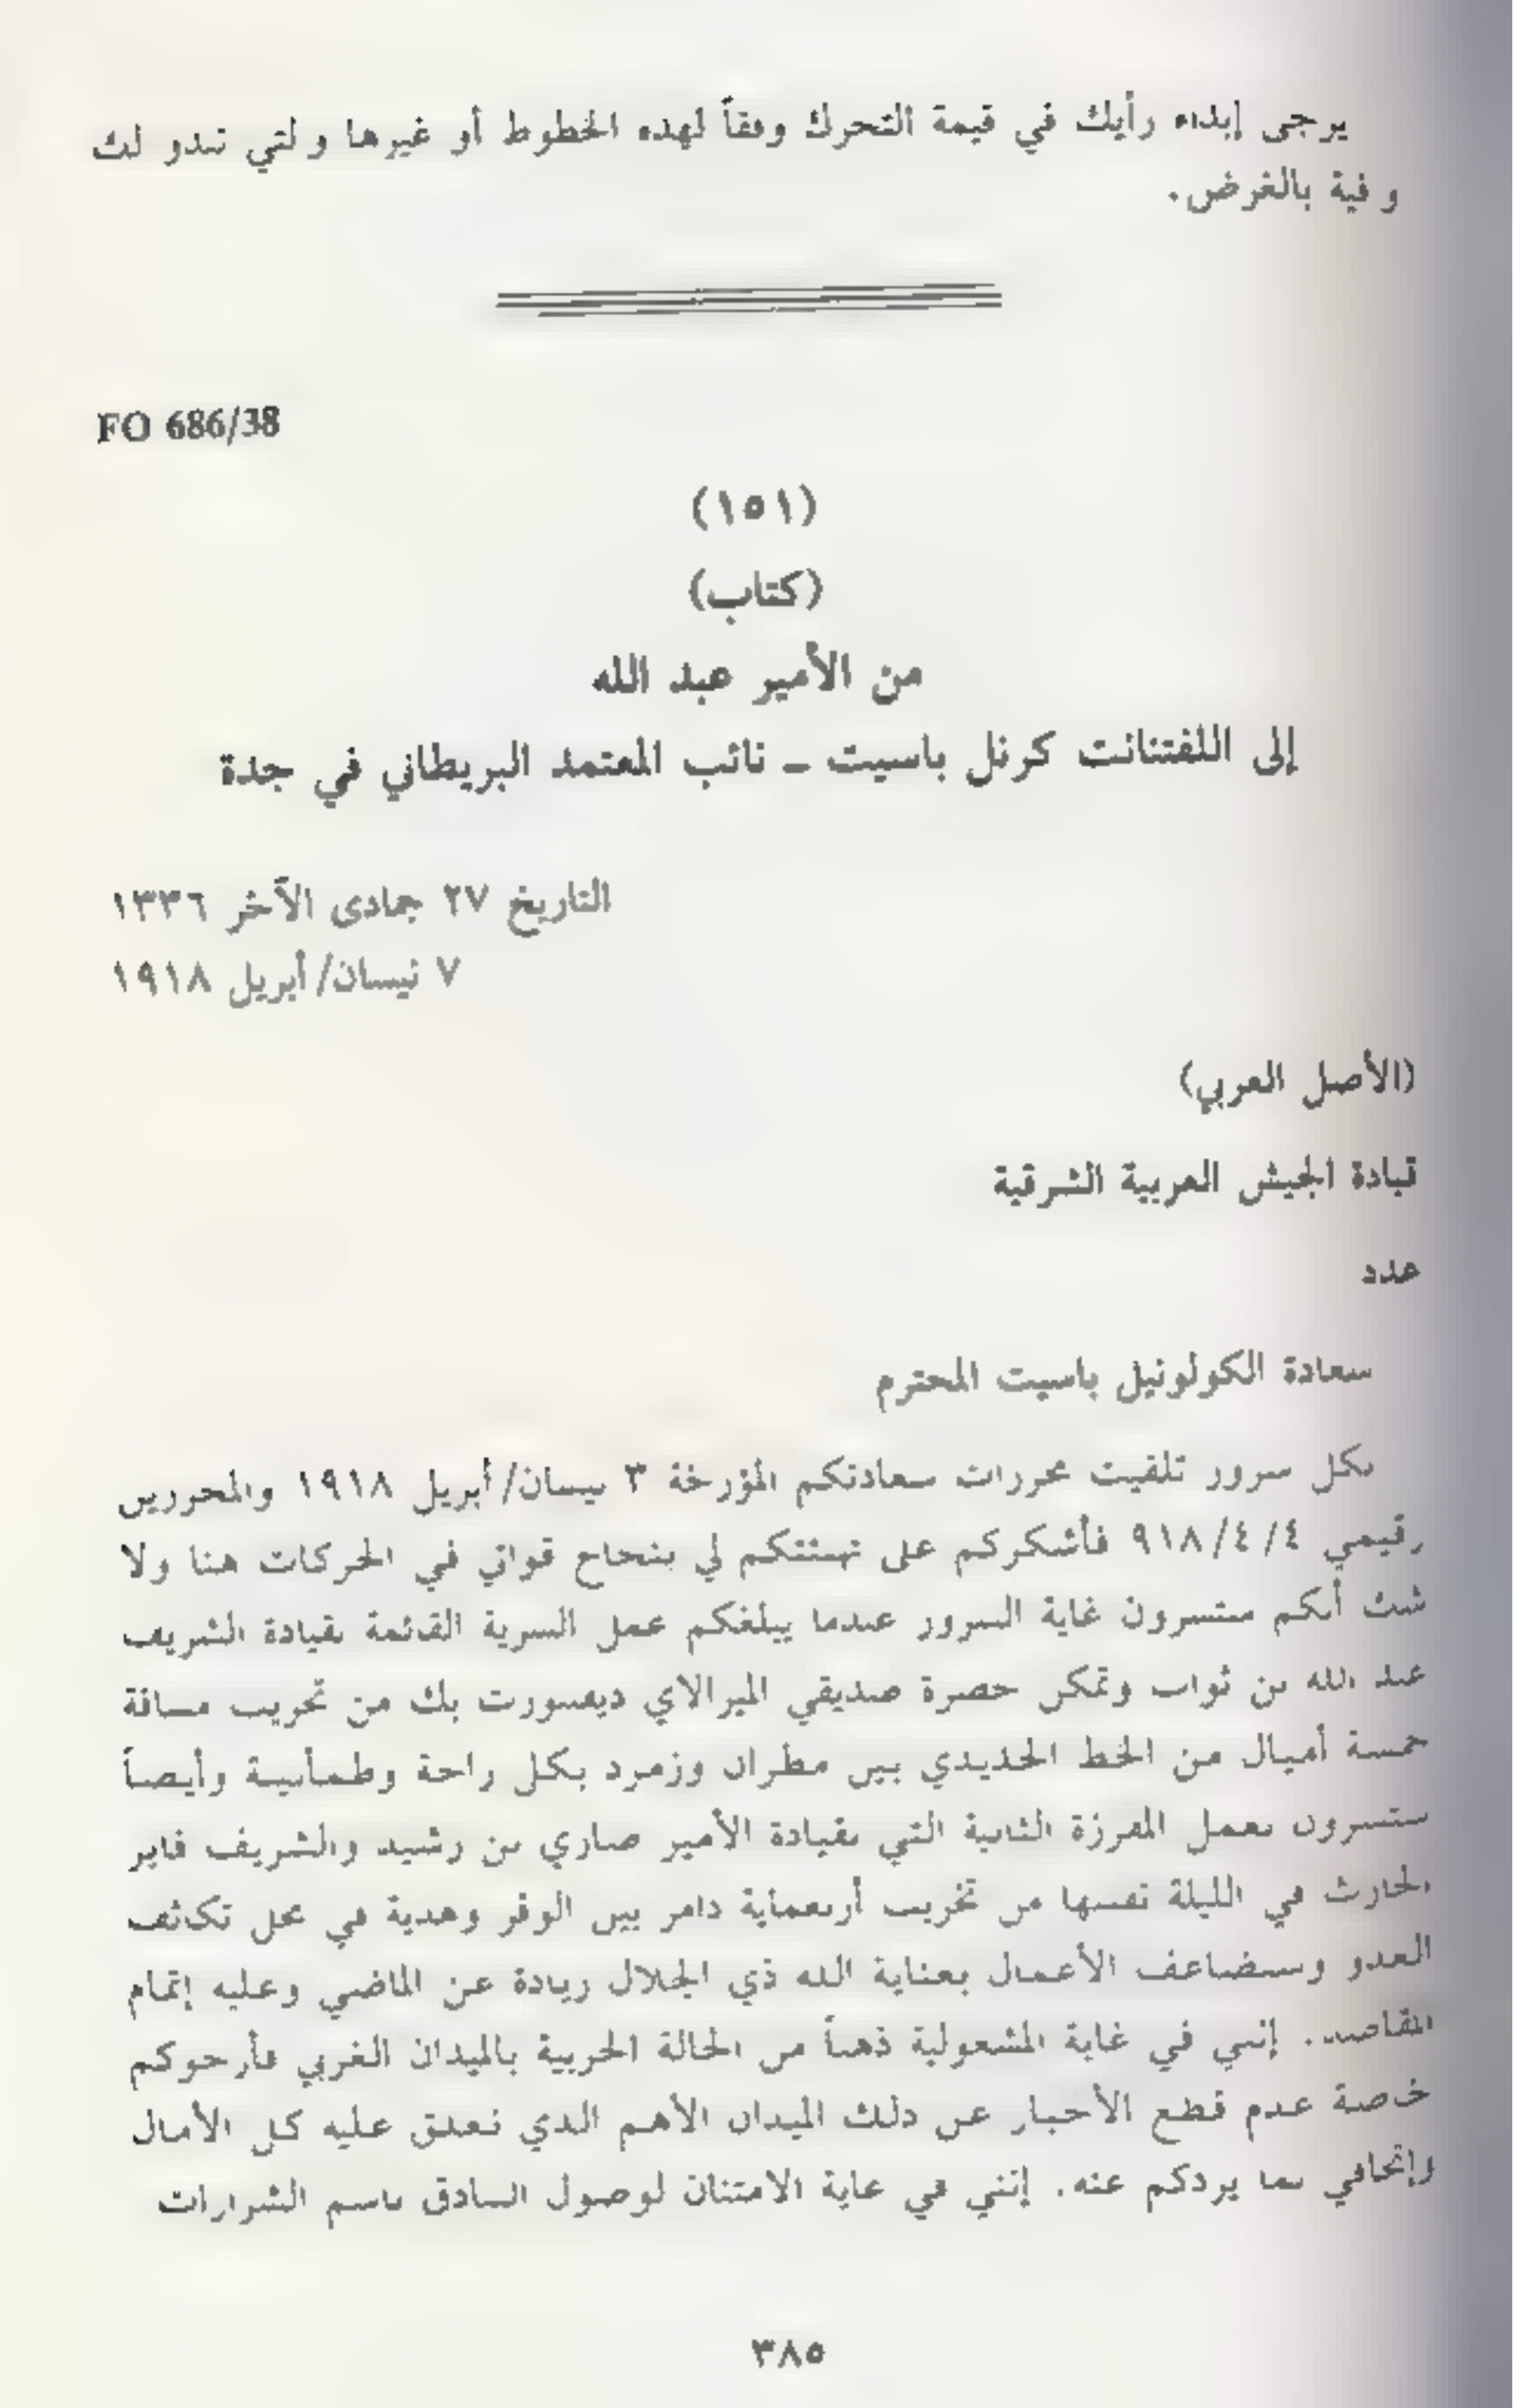 يرجى إبداء رأيك في قيمة التحرك وفقاً لهذه الخطوط أو غيرها والتي تبدو لك
وافية بالغرض.
FO 686/38
(١٥١)
(كتاب)
من الأمير عبد الله
إلى اللفتنانت كرنل باسيت ــ نائب المعتمد البريطاني في جدة
التاريخ ٢٧ جمادى الآخر ١٣٣٦
٧ نيسان/أبريل ١٩١٨
(الأصل العربي)
قيادة الجيش العربية الشرقية
عدد
سعادة الكولونيل باسيت المحترم
بكل سرور تلقيت محررات سعادتكم المؤرخة ٣ نيسان/أبريل ١٩١٨ والمحررين
رقيمي ٤/٤/٩١٨ فأشكركم على تهنئتكم لي بنجاح قواتي في الحركات هنا ولا
شك أنكم ستسرون غاية السرور عندما يبلغكم عمل السرية القائمة بقيادة الشريف
عبد الله بن ثواب وتمكن حضرة صديقي الميرالاي ديفنبورت بك من تخريب مسافة
خمسة أميال من الخط الحديدي بين مطران وزمرد بكل راحة وطمأنينة وأيضاً
ستسرون بعمل المفرزة الثانية التي بقيادة الأمير ضاري بن رشيد والشريف فايز
الحارث في الليلة نفسها من تخريب أربعماية دامر بين الوقر وهدية في محل تكاثف
العدو وسنضاعف الأعمال بعناية الله ذي الجلال زيادة عن الماضي وعليه إتمام
المقاصد. إنني في غاية المشغولية ذهناً من الحالة الحربية بالميدان الغربي فأرجوكم
خاصة عدم قطع الأخبار عن ذلك الميدان الأهم الذي نعلق عليه كل الأمال
وإتحافي بما يردكم عنه. إنني في غاية الامتنان لوصول البنادق باسم الشرارات
٣٨٥